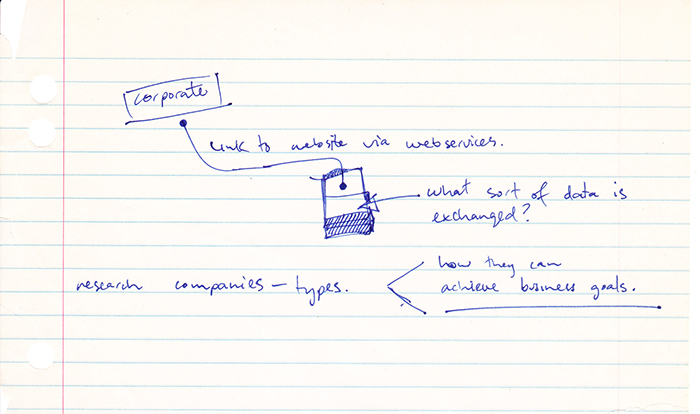 corporate
link to website via webservices.
what sort of data is
exchanged?
research companies – types.
how they can
achieve business goals.